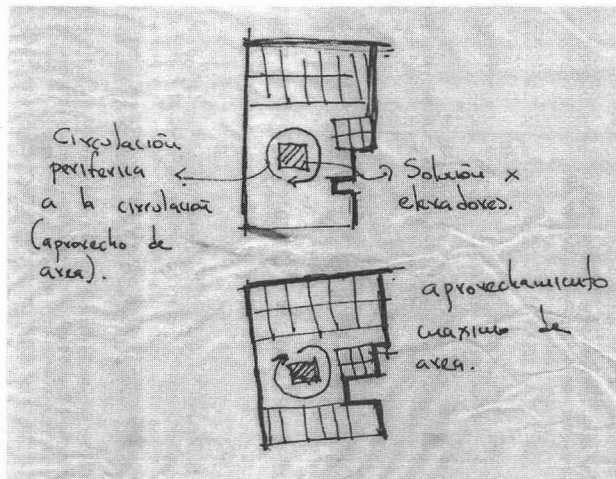 Circulación
periferica
a la circulación
(aprovecho de
area).
Solución x
elevadores.
aprovechamiento
maximo de
area.